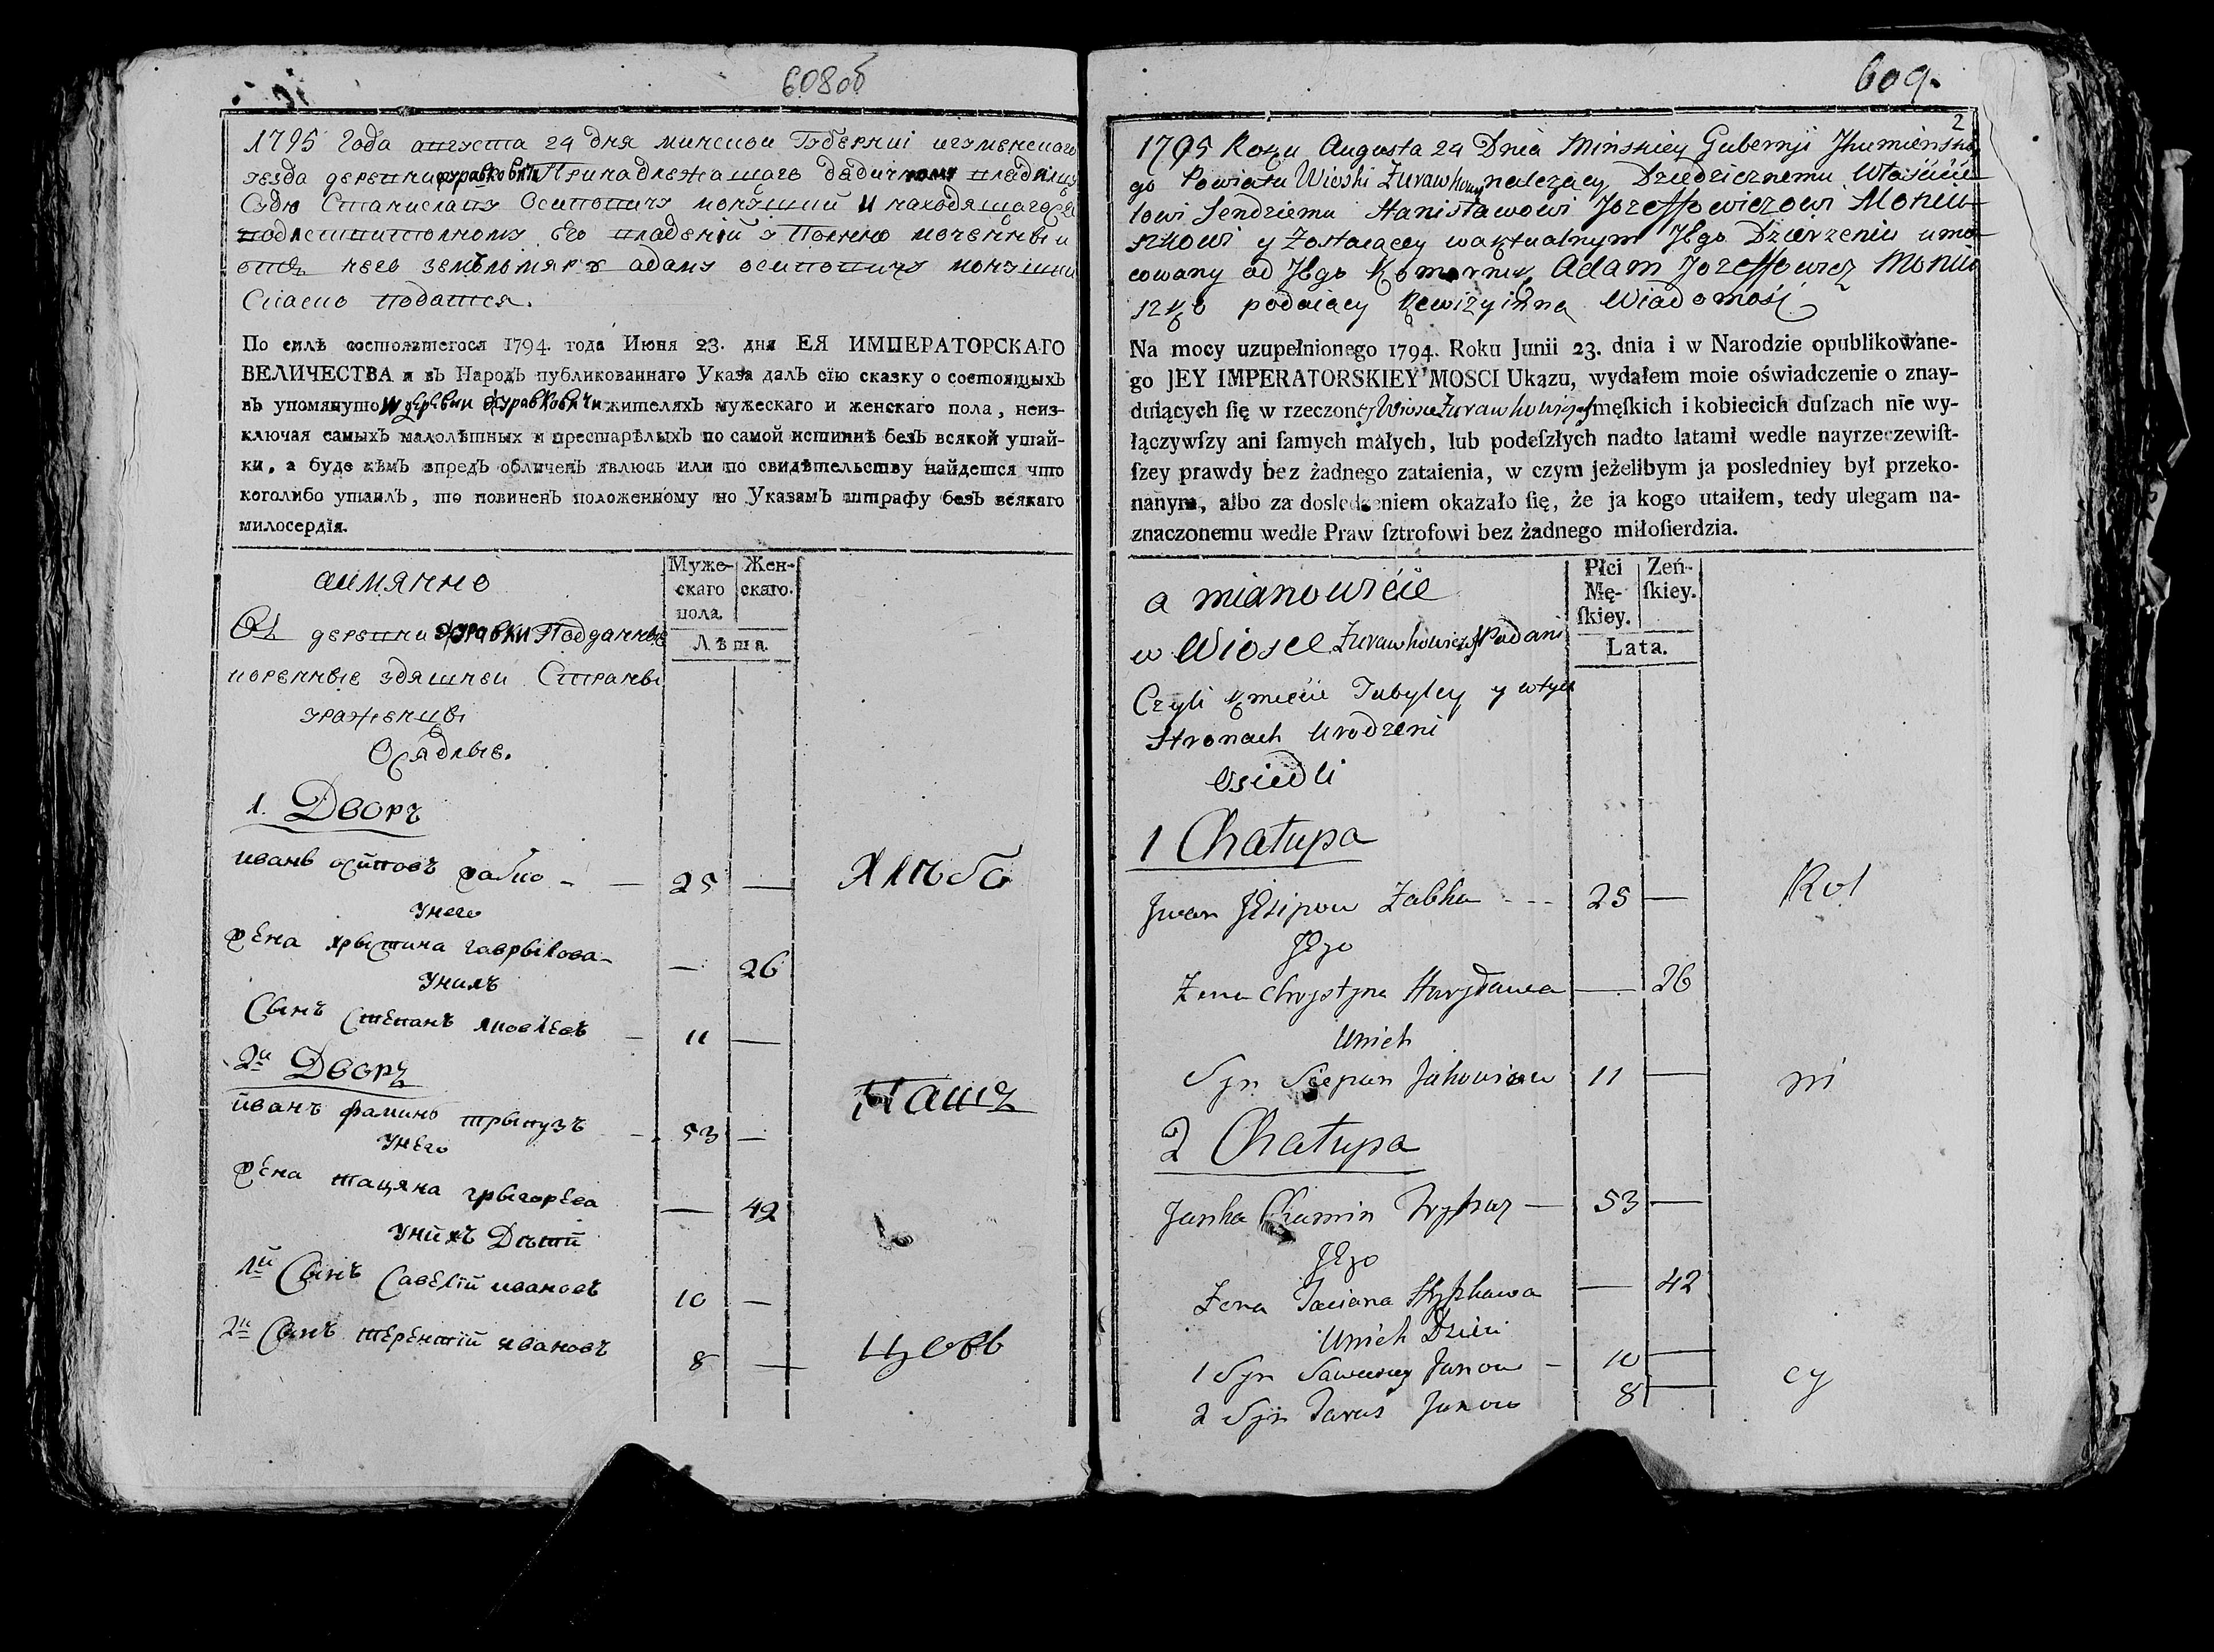 608об
1795 года августа 24 дня минской Губерниі игуменскаго
уезда деревни Журавковичи Принадлежащаго дѣдичному владѣлцу
Судю Станиславу Осиповичу монушки и находящагося
его владѣній у Полно моченный
отъ него землѣмяръ адамъ осиповичъ монушки
подаются.
По силѣ состоявшегося 1794. года Июня 23. дня ЕЯ ИМПЕРАТОРСКАГО
ВЕЛИЧЕСТВА и въ НародЪ публикованнаго Указа далЪ сїю сказку о состоящыхЪ
въ упомянутой деревни Журавковичи жителяхЪ мужескаго и женскаго пола, неиз-
ключая самыхЪ малолѣтных и престарѣлыхЪ по самой истиннѣ безЪ всякой утай-
ки, а буде кѣмЪ впредЪ обличенЪ явлюсь или по свидѣтельству найдется что
коголибо утаилЪ, то повиненЪ положенному по УказамЪ штрафу безЪ всякаго
милосердїя.
аимянно
Муже-скаго пола. Жен-скаго.
Лѣта.
Въ деревни Журавки Подданные
коренные здяшней Страны
уроженцы
Осядлые.
1. Дворъ
иванъ осиповъ жабко - 25 —
У него
жена хрыстина гаврылова - — 26
Унихъ
Сынъ Степанъ яковлевъ — 11 —
2й Дворъ
иванъ фаминъ трыпузъ — 53 —
Унего
жена тацяна грыгорева — 42
Унихъ Дѣти
1й Сынъ Савелій ивановъ 10 —
2й Сынъ терентій ивановъ 8 —
609.
2
1795 Roku Augusta 24 Dnia Mińskiey Gubernji Jhumieńskie
go Powiatu Wioski Żurawkowicz należący Dziedzicznemu Właścicie
lowi Sendziemu Stanisławowi Jozeffowiczowi Moniu
szkowi y Zostaiącey waktualnym JEgo Dzierżeniu umo
cowany od JEgo Komornik Adam Jozeffowicz Moniu
szko podaiący Rewizyiną Wiadomość
Na mocy uzupełnionego 1794. Roku Junii 23. dnia i w Narodzie opublikowane-
go JEY IMPERATORSKIEY MOSCI Ukazu, wydałem moie oświadczenie o znay-
duiących ſię w rzeczoney Wiosce Żurawkowiczach męſkich i kobiecich duſzach nie wy-
łączywſzy ani ſamych małych, lub podeſzłych nadto latami wedle nayrzeczewiſt-
ſzey prawdy bez żadnego zataienia, w czym jeżelibym ja posledniey był przeko-
nanym, albo za dosledzeniem okazało ſię, że ja kogo utaiłem, tedy ulegam na-
znaczonemu wedle Praw ſztrofowi bez żadnego miłoſierdzia.
a mianowicie
Płci Mę-ſkiey. Zeń-ſkiey.
Lata.
w Wiosce Żurawkowiczach Podani
Czyli kmiecie Tubylcy y wtych
Stronach Urodzeni
Osiedli
1 Chałupa
Jwan JEsipow Żabka - - - 25 —
JEgo
Żena Chrystyna Hawryławna — 26
Unich
Syn Sciepan Jakowiew 11 —
2 Chałupa
Janka Chamin Trypuz — 53 —
JEgo
Żena Taciana — 42
Unich Dzieci
1 Syn Janow — 10 —
2 Syn Taras Janow 8 —
Rol
ni
cy